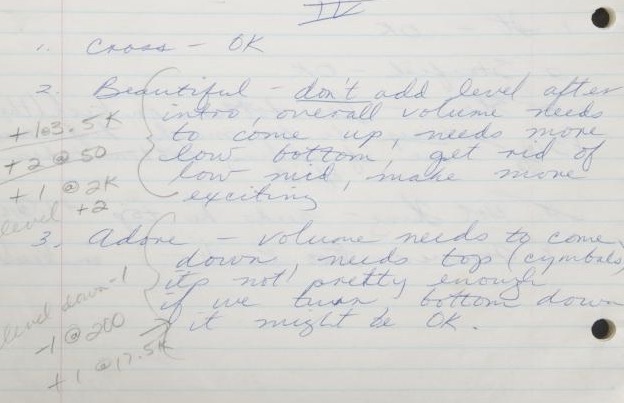 IV
1. Cross - OK
2. Beautiful - don't add level after
intro, overall volume needs
to come up, needs more
low bottom, get rid of
low mid, make more
exciting
+1@3.5K
+2@50
+1@2K
level +2
3. Adore - volume needs to come
down, needs top (cymbals)
its not pretty enough
if we turn bottom down
it might be OK.
level down -1
-1@200
+1@17.5K